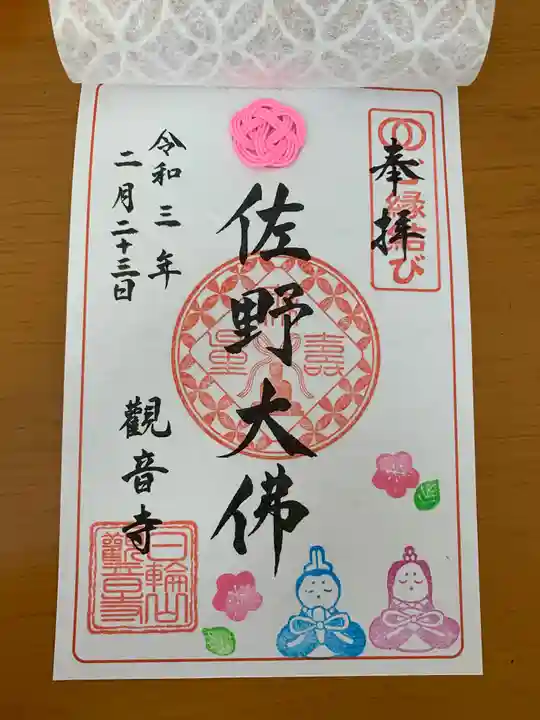 奉拝
ご縁結び
佐野大佛
令和三年
二月二十三日
觀音寺
日輪山
觀音寺